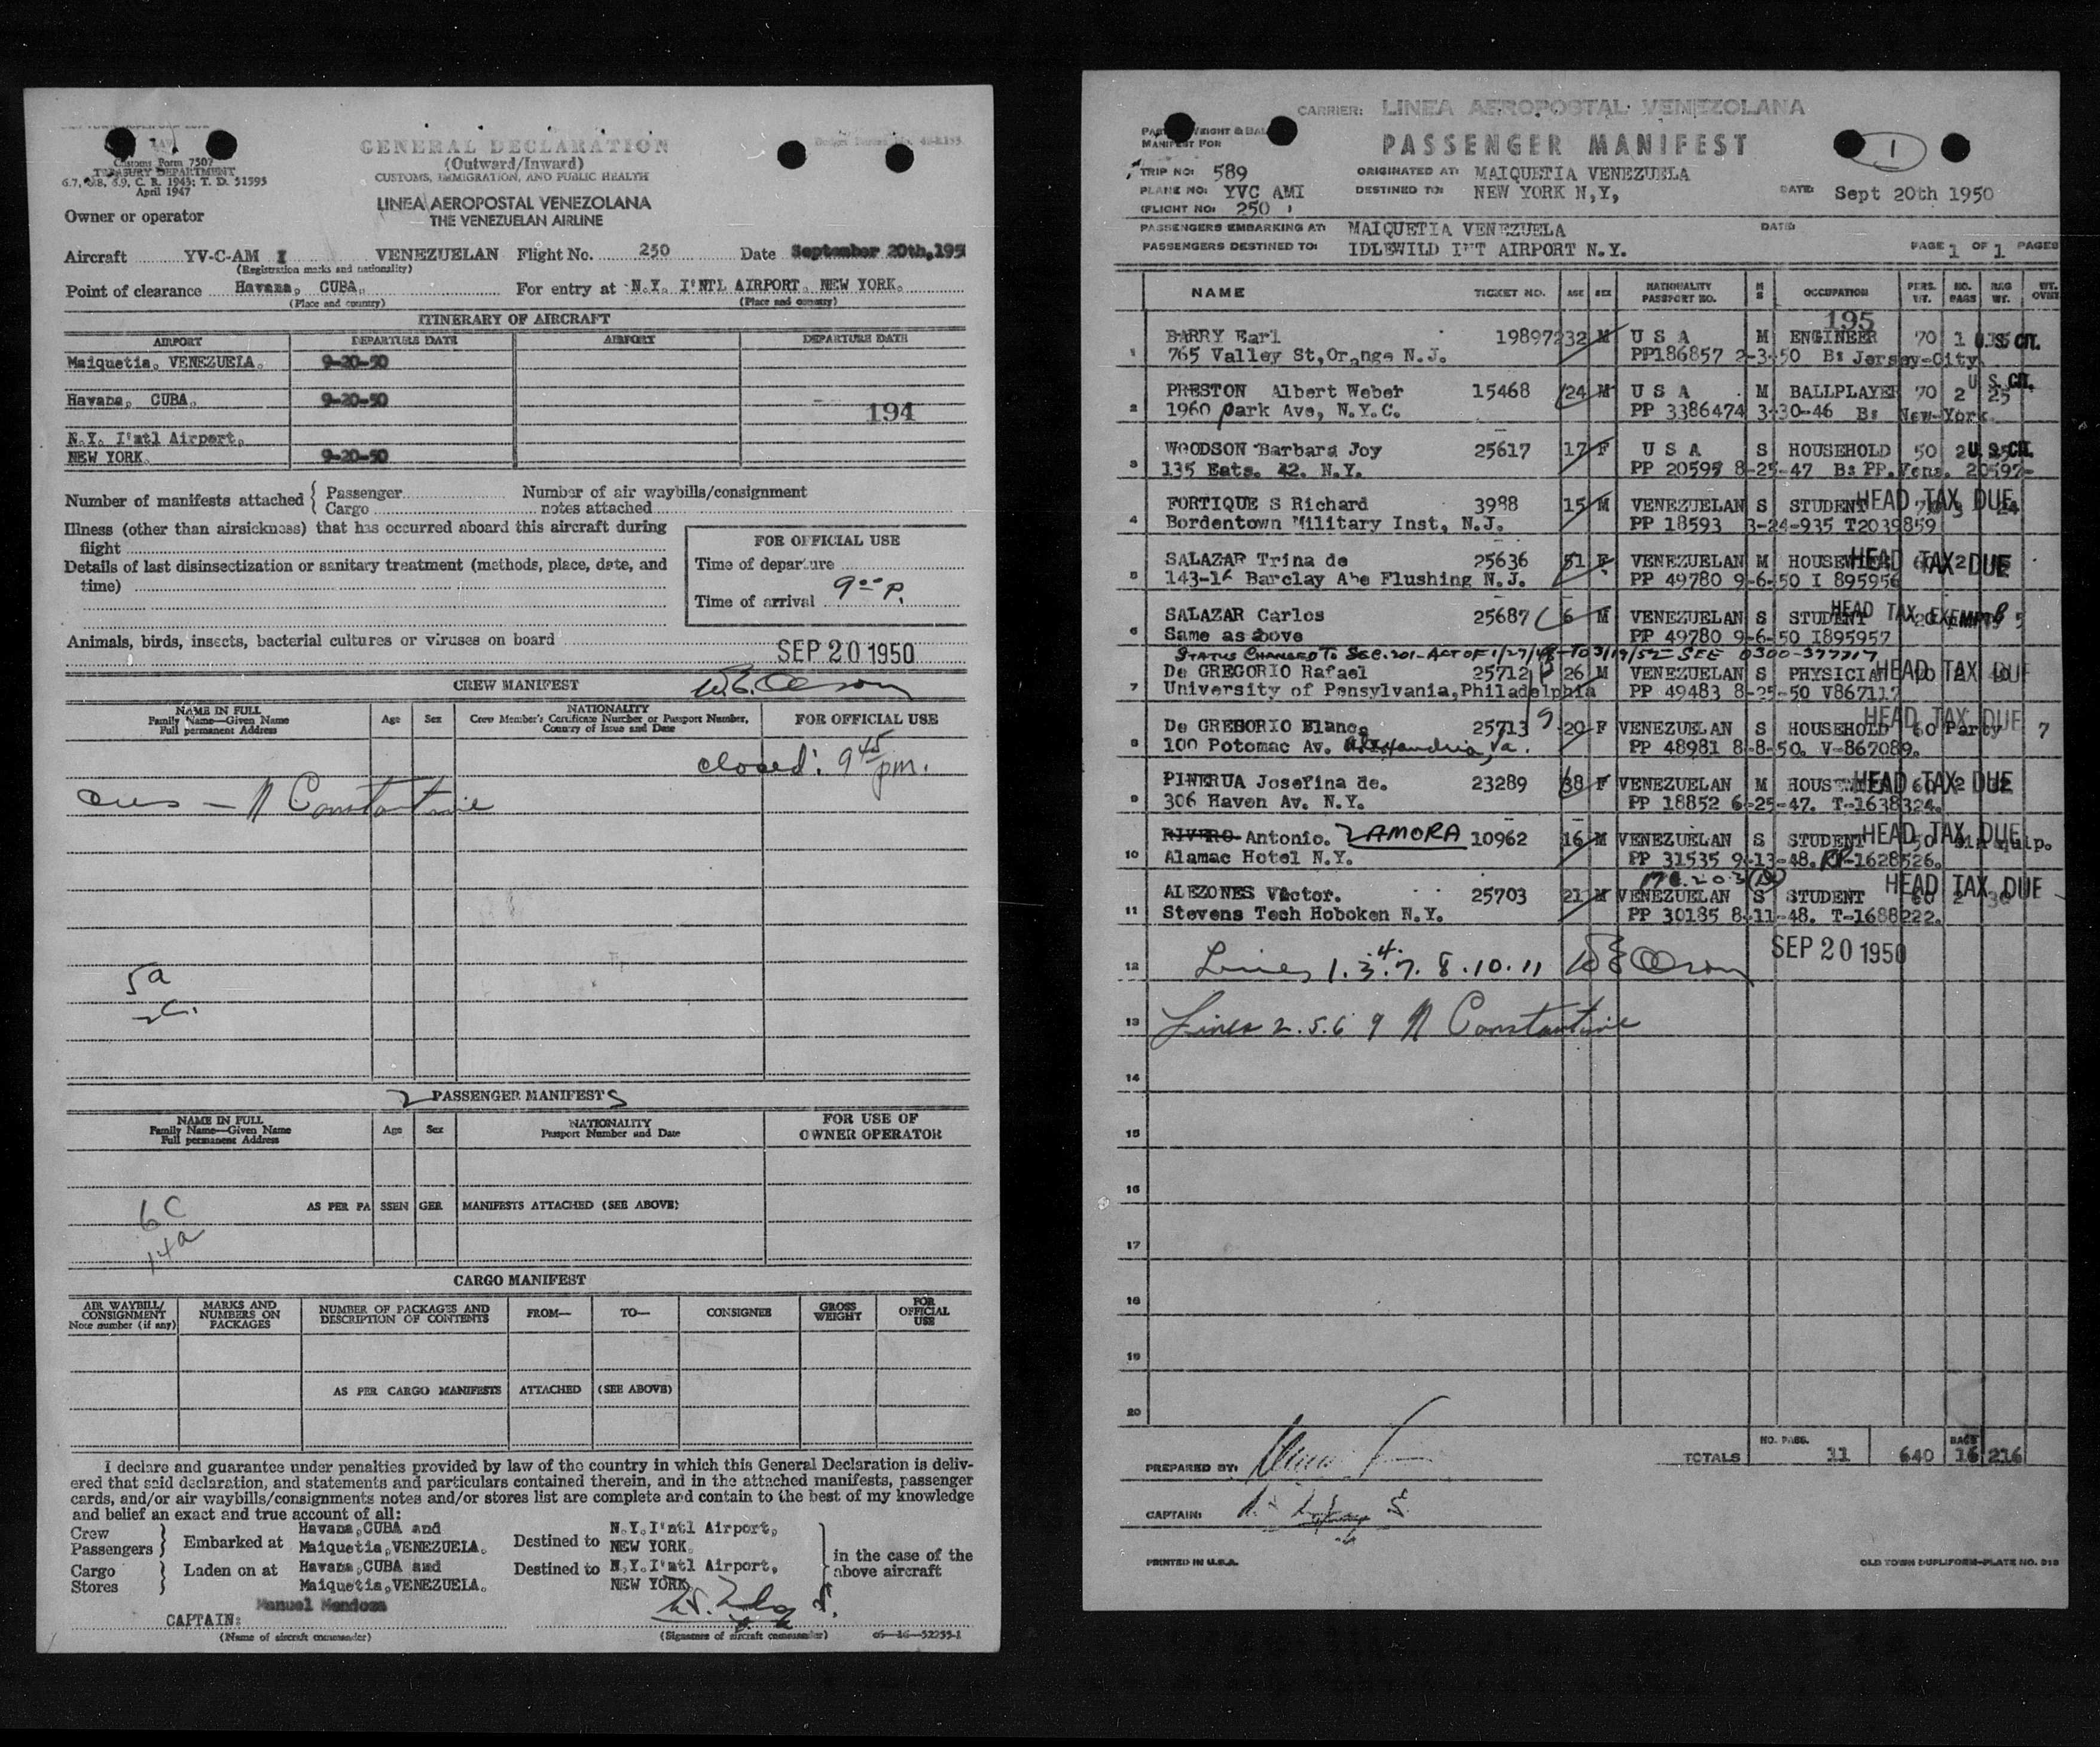 Customs Form 7507
TREASURY DEPARTMENT
6.7, 6.8, 6.9, C. R. 1943; T. D. 51595
April 1947
GENERAL DECLARATION
(Outward/Inward)
CUSTOMS, IMMIGRATION, AND PUBLIC HEALTH
LINEA AEROPOSTAL VENEZOLANA
THE VENEZUELAN AIRLINE
Owner or operator
Aircraft YV-C-AM I VENEZUELAN Flight No. 250 Date September 20th,195
(Registration marks and nationality)
Point of clearance Havana, CUBA. For entry at N.Y. I'NTL AIRPORT, NEW YORK.
(Place and country) (Place and country)
ITINERARY OF AIRCRAFT
AIRPORT DEPARTURE DATE AIRPORT DEPARTURE DATE
Maiquetia, VENEZUELA. 9-20-50
Havana, CUBA. 9-20-50
194
N.Y. I'ntl Airport,
NEW YORK. 9-20-50
Number of manifests attached { Passenger Number of air waybills/consignment
Cargo notes attached
Illness (other than airsickness) that has occurred aboard this aircraft during
flight
Details of last disinsectization or sanitary treatment (methods, place, date, and
time)
FOR OFFICIAL USE
Time of departure
Time of arrival 9 00 P.
Animals, birds, insects, bacterial cultures or viruses on board
SEP 20 1950
CREW MANIFEST W.E. Olson
NAME IN FULL
Family Name—Given Name
Full permanent Address
Age Sex
NATIONALITY
Crew Member's Certificate Number or Passport Number,
Country of Issue and Date
FOR OFFICIAL USE
closed: 9 45 pm.
N Constantine
5a
2c.
2 PASSENGER MANIFESTS
NAME IN FULL
Family Name—Given Name
Full permanent Address
Age Sex
NATIONALITY
Passport Number and Date
FOR USE OF
OWNER OPERATOR
6C
14a
AS PER PASSENGER MANIFESTS ATTACHED (SEE ABOVE)
CARGO MANIFEST
AIR WAYBILL/
CONSIGNMENT
Note number (if any)
MARKS AND
NUMBERS ON
PACKAGES
NUMBER OF PACKAGES AND
DESCRIPTION OF CONTENTS
FROM— TO— CONSIGNEE
GROSS
WEIGHT
FOR
OFFICIAL
USE
AS PER CARGO MANIFESTS ATTACHED (SEE ABOVE)
I declare and guarantee under penalties provided by law of the country in which this General Declaration is deliv-
ered that said declaration, and statements and particulars contained therein, and in the attached manifests, passenger
cards, and/or air waybills/consignments notes and/or stores list are complete and contain to the best of my knowledge
and belief an exact and true account of all:
Crew
Passengers } Embarked at Havana,CUBA and Maiquetia,VENEZUELA. Destined to N.Y.I'ntl Airport, NEW YORK.
Cargo
Stores } Laden on at Havana,CUBA and Maiquetia,VENEZUELA. Destined to N.Y.I'ntl Airport, NEW YORK
in the case of the
above aircraft
Manuel Mendoza
CAPTAIN:
(Name of aircraft commander) (Signature of aircraft commander) 16—52255-1
CARRIER: LINEA AEROPOSTAL VENEZOLANA
PASSENGER MANIFEST
1
MANIFEST FOR
TRIP NO: 589 ORIGINATED AT: MAIQUETIA VENEZUELA
PLANE NO: YVC AMI DESTINED TO: NEW YORK N,Y, DATE: Sept 20th 1950
(FLIGHT NO: 250 )
PASSENGERS EMBARKING AT: MAIQUETIA VENEZUELA DATE:
PASSENGERS DESTINED TO: IDLEWILD INT AIRPORT N.Y. PAGE 1 OF 1 PAGES
NAME TICKET NO. AGE SEX NATIONALITY PASSPORT NO. M S OCCUPATION PERS. WT. NO. BAGS BAG WT. WT. OVWT
195
1 BARRY Earl 198972 32 M U S A M ENGINEER 70 1 U.S. CIT.
765 Valley St,Orange N.J. PP186857 2-3-50 B: Jersey-City
2 PRESTON Albert Weber 15468 24 M U S A M BALLPLAYER 70 2 25 U.S. CIT.
1960 park Ave, N.Y.C. PP 3386474 3-30-46 B: New-York
3 WOODSON Barbara Joy 25617 17 F U S A S HOUSEHOLD 50 2 U.S. CIT.
135 Eats. 42. N.Y. PP 20597 8-25-47 B: PP.Vens. 20597-
4 FORTIQUE S Richard 3988 15 M VENEZUELAN S STUDENT HEAD TAX DUE
Bordentown Military Inst, N.J. PP 18593 3-24-935 T2039859
5 SALAZAR Trina de 25636 51 F VENEZUELAN M HEAD TAX DUE
143-16 Barclay Abe Flushing N.J. PP 49780 9-6-50 I 895956
6 SALAZAR Carlos 25687 6 M VENEZUELAN S STUDENT HEAD TAX EXEMPT 5
Same as above PP 49780 9-6-50 I895957
STATUS CHANGED TO SEC. 201-ACT OF 1/27/48-TO 3/19/52-SEE 0300-377717
7 De GREGORIO Rafael 25712 26 M VENEZUELAN S PHYSICIAN HEAD TAX DUE
University of Pensylvania,Philadelphia PP 49483 8-25-50 V867117
8 De GREGORIO Blanca 25713 20 F VENEZUELAN S HOUSEHOLD 60 Party 7 HEAD TAX DUE
100 Potomac Av. Alexandria, Va. PP 48981 8-8-50. V-867089.
9 PINERUA Josefina de. 23289 38 F VENEZUELAN M HEAD TAX DUE
306 Haven Av. N.Y. PP 18852 6-25-47. T-1638324.
10 RIVERO Antonio. ZAMORA 10962 16 M VENEZUELAN S STUDENT HEAD TAX DUE
Alamac Hotel N.Y. PP 31535 9-13-48. RP-1628526.
11 ALEZONES Victor. 25703 21 M VENEZUELAN S STUDENT 60 2 HEAD TAX DUE
Stevens Tech Hoboken N.Y. PP 30185 8-11-48. T-1688222.
12 Lines 1.3.4.7.8.10.11 W E Olson SEP 20 1950
13 Lines 2.5.6 9 N Constantine
14
15
16
17
18
19
20
TOTALS NO. PASS. 11 640 BAGS 16 216
PREPARED BY:
CAPTAIN:
PRINTED IN U.S.A. OLD TOWN DUPLIFORM—PLATE NO. 818